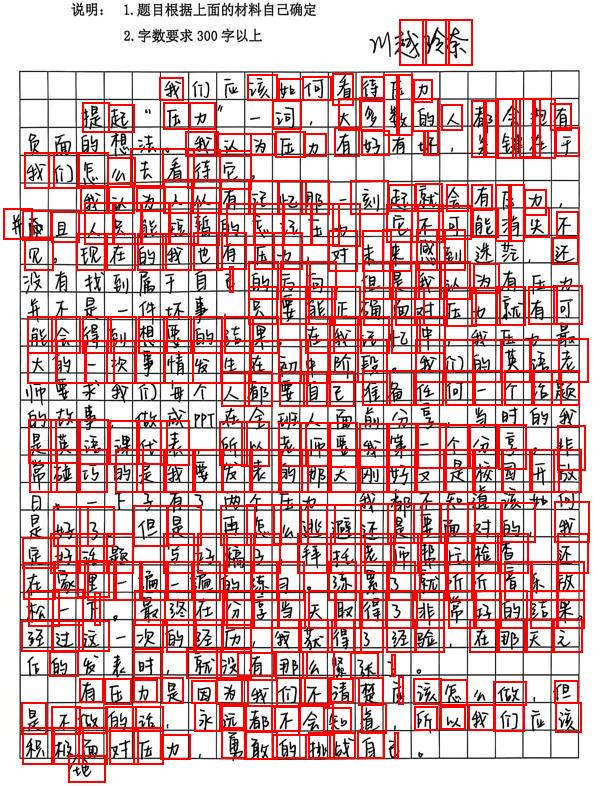 说明： 1.题目根据上面的材料自己确定
2.字数要求 300 字以上
川越玲奈
我们应该如何看待压力
提起“压力”一词，大多数的人都会抱有
负面的想法。我认为压力有好有坏，关键在于
我们怎么去看待它。
我认为人从有记忆那一刻起就会有压力，
并而且人只能该暂的忘记压力，它不可能消失不
见。现在的我也有压力，对未来感到迷茫，还
没有找到属于自己的方向。但是我认为有压力
并不是一件坏事，只要能正确面对压力就有可
能会得到想要的结果。在我记忆中，我压力最
大的一次事情发生在初中阶段。我们的英语老
师要求我们每个人都要自己准备任何一个话题
的故事，做成PPT在全班人面前分享，当时的我
是英语课代表，所以老师要我第一个分享，非
常碰巧的是我要发表的那天刚好又是校园开放
日。一下子有了两个压力，我都不知道该如何
是好了。但是，再怎么逃避还是要面对的，我
定好话题，写好稿子，拜托老师帮忙检查，还
在家里一遍一遍的练习。练累了就听听音乐放
松一下。最终在分享当天取得了非常好的结果。
经过这一次的经历，我获得了经验，在那天之
后的发表时，就没有那么紧张了。
有压力是因为我们不清楚应该怎么做，但
是不做的话，永远都不会知道，所以我们应该
积极面对压力，勇敢的挑战自己。
地